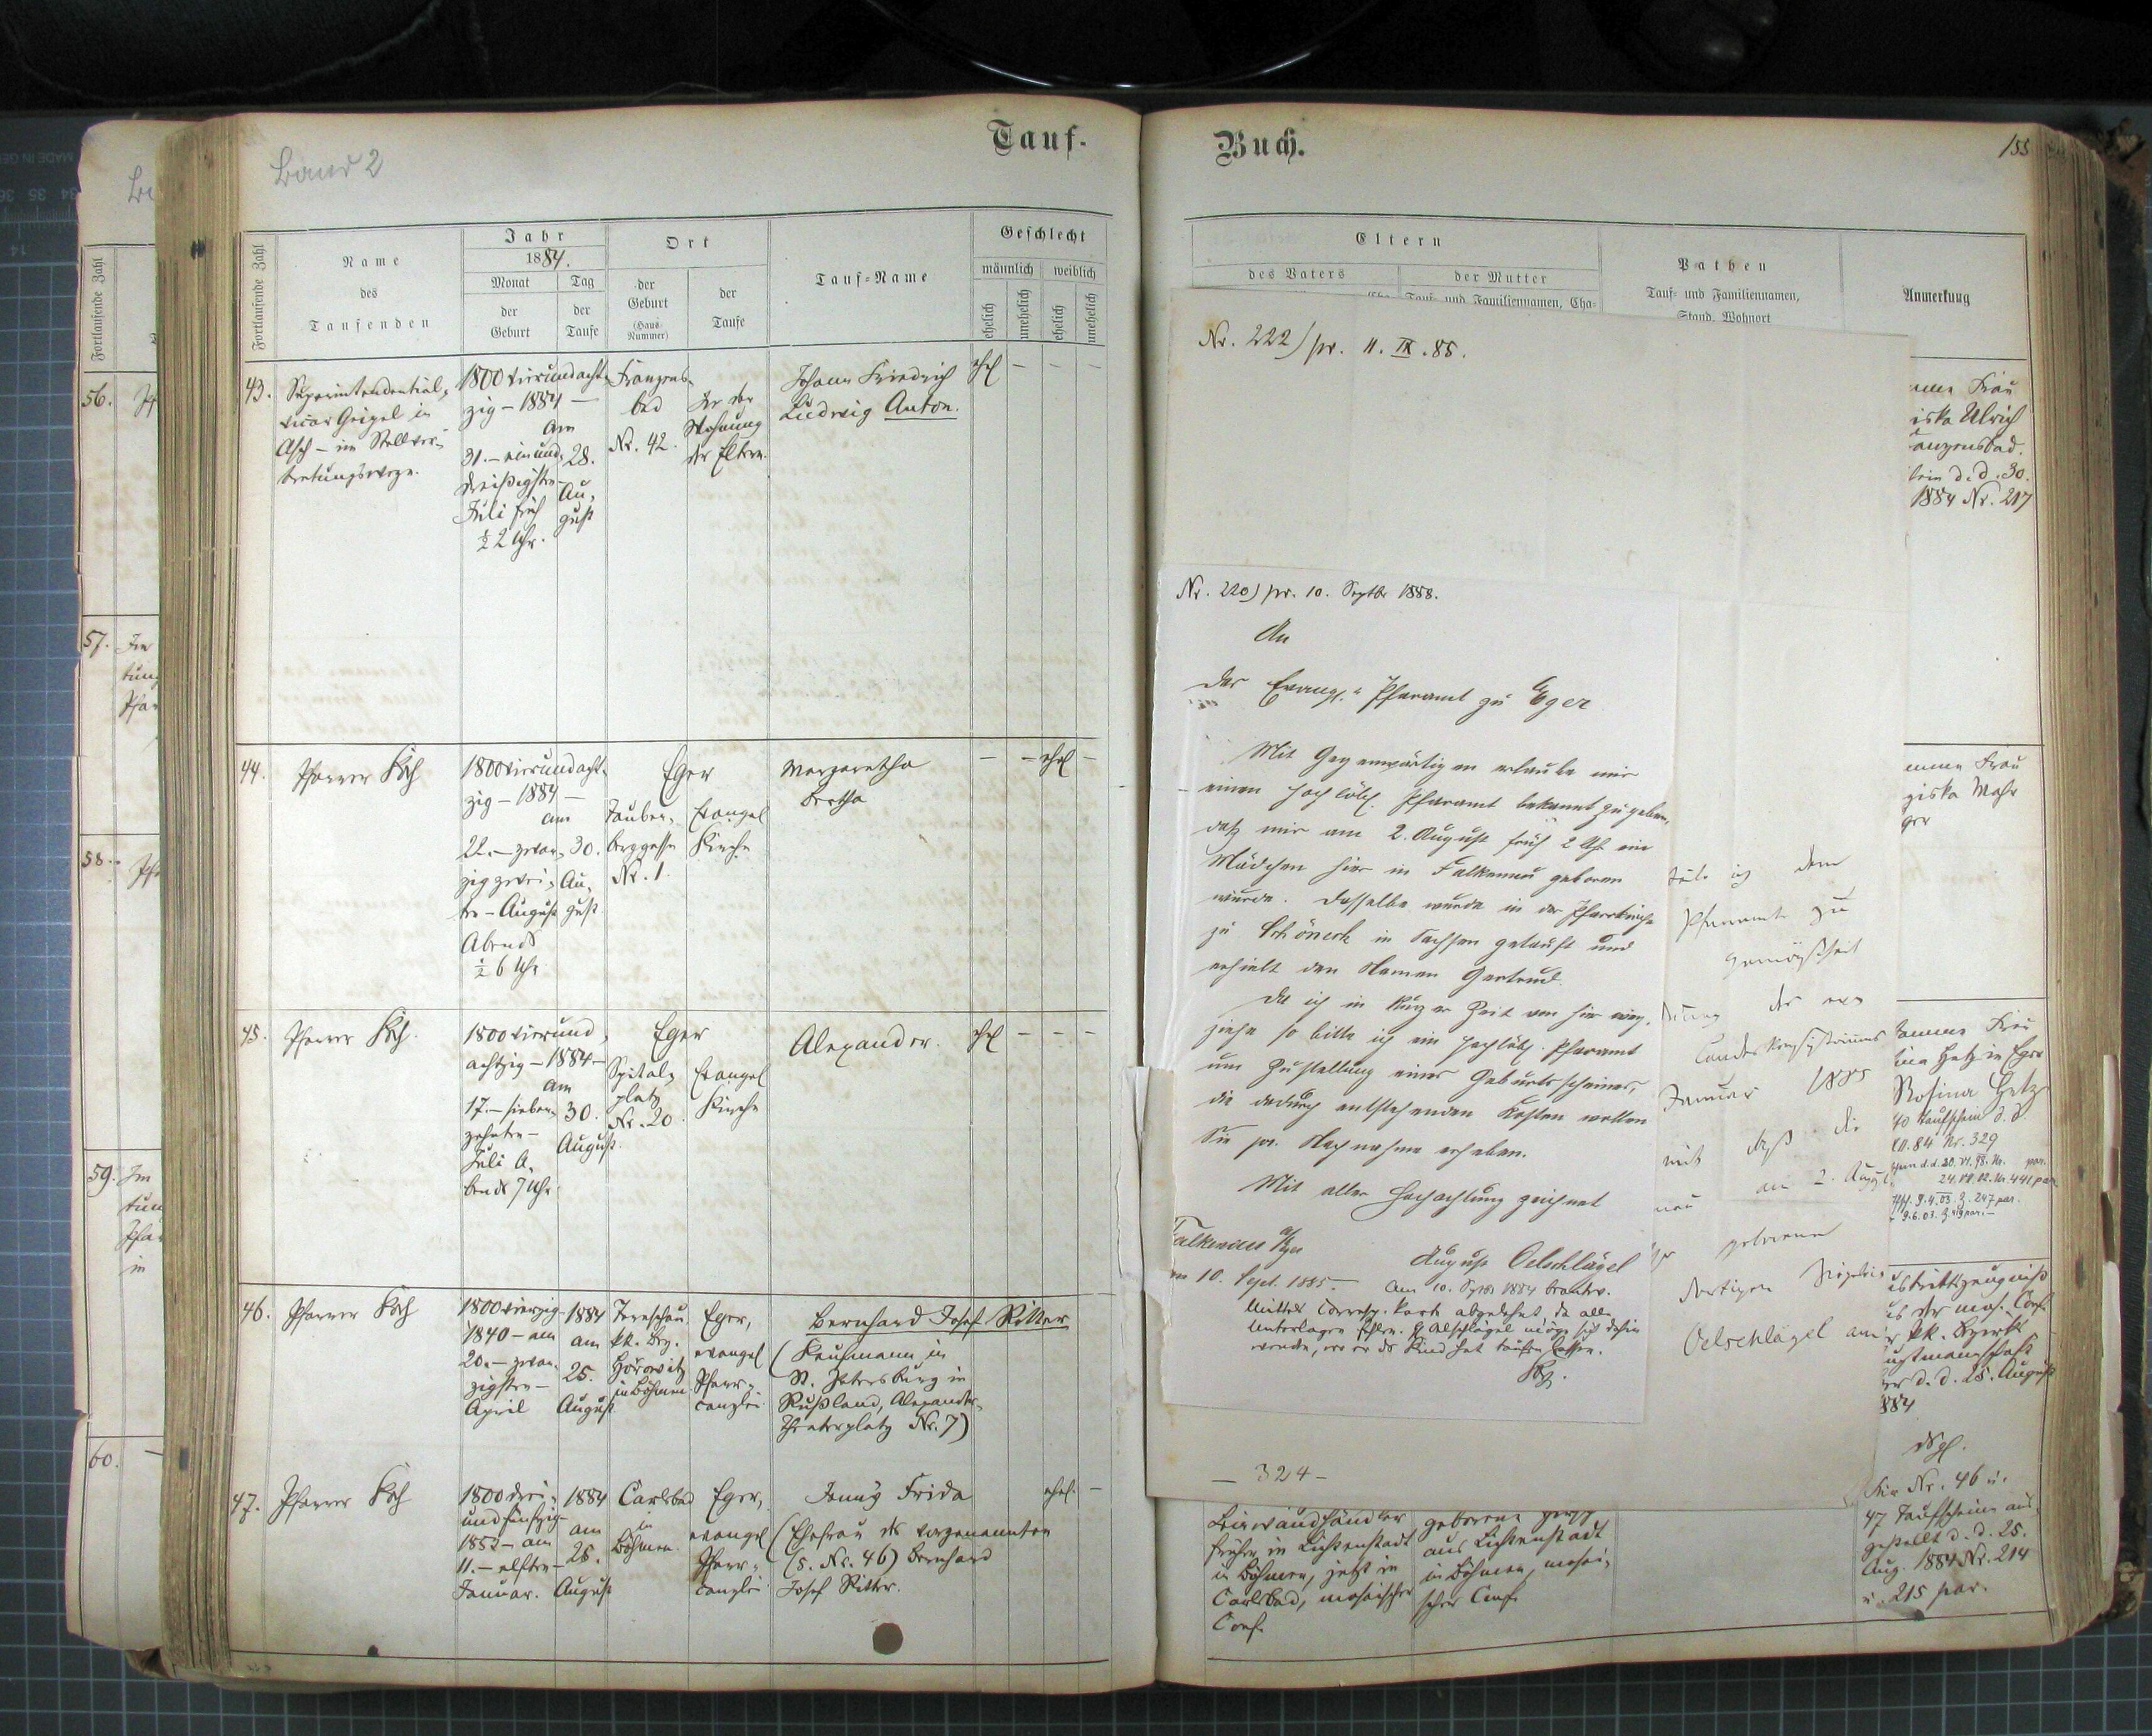 Band 2
Tauf-
Fortlaufende Zahl
Name
des
Taufenden
Jahr
1884.
Monat
der
Geburt
Tag
der
Taufe
Ort
der
Geburt
(Haus-
Nummer)
der
Taufe
Tauf-Name
Geschlecht
männlich
weiblich
ehelich
unehelich
ehelich
unehelich
43.
Superintendential-
vicar Geigel in
Asch – im Stellver-
tretungswege.
1800 vierundacht-
zig – 1884 –
am
31. – einund-
dreißigsten
Juli früh
½ 2 Uhr.
28.
Au-
gust
Franzens-
bad
Nr. 42.
In der
Wohnung
der Eltern.
Johann Friedrich
Ludwig Anton.
ehel – – –
44.
Pfarrer Koch
1800 vierundacht-
zig – 1884 –
am
22. – zwan-
zigzwei-
te – August
Abends
½ 6 Uhr
30.
Au-
gust
Eger
Nr. 1.
Evangel
Kirche
Margaretha
Bertha
– – ehel –
45.
Pfarrer Koch.
1800 vierund-
achtzig – 1884 –
am
17. – sieben-
zehnten –
Juli A-
bends 7 Uhr
30.
August.
Eger
Spital-
platz
Nr. 20.
Evangel
Kirche
Alexander.
ehel – – –
46.
Pfarrer Koch
1800 vierzig –
1840 – am
20. – zwan-
zigsten –
April
1884
am
25.
August
kk. Bez.
Hořowitz
in Böhmen.
Eger,
evangel
Pfarr-
canzlei.
Bernhard Josef Ritter
(Kaufmann in
St. Petersburg in
Rußland, Alexander-
Theaterplatz Nr. 7)
47.
Pfarrer Koch
1800 drei-
undfünfzig –
1853 – am
11. – elften –
Januar.
1884
am
25.
August
Carlsbad
in
Böhmen.
Eger,
evangel
Pfarr-
canzlei.
Jenny Frida
(Ehefrau des vorgenannten
(s. Nr. 46) Bernhard
Josef Ritter.
ehel. –
56.
57.
58.
59.
60.
Buch.
155
Eltern
des Vaters
der Mutter
Tauf- und Familiennamen, Cha-
Pathen
Tauf- und Familiennamen,
Stand, Wohnort
Anmerkung
Nr. 222) pr. 11. IX. 85.
Nr. 220) pr. 10. Septbr 1885.
An
das Evangl. Pfarramt zu Eger
Mit Gegenwärtigem erlaube mir
einem hochlöbl. Pfarramt bekannt zu geben,
daß mir am 2. August früh 2 Uhr ein
Mädchen hier in Falkenau geboren
wurde. Dasselbe wurde in der Pfarrkirche
zu Schöneck in Sachsen getauft und
erhielt den Namen Gertrud.
Da ich in kurzer Zeit von hier weg-
ziehe so bitte ich ein hochlöbl. Pfarramt
um Zustellung eines Geburtsscheines,
die dadurch entstehenden Kosten wollen
Sie pr. Nachnahme erheben.
Mit aller Hochachtung zeichnet
Falkenau a/Eger
10. Sept. 1885
August Oelschlägel
mittels Corresp. Karte abgelehnt, da alle
Unterlagen fehlen. H. Oelschlägel möge sich dahin
wenden, wo er das Kind hat taufen lassen.
teile ich dem
Pfarramte zu
Gemäßheit
der
Landeskonsistoriums
Januar 1885
mit daß die
am 2. August
geborene
dortigen
Oelschlägel am
– 324 –
Frau
iska Ulrich
anzensbad.
d. d. 30.
1884 Nr. 217
Frau
ziska
ger
Frau
in Eger
Rosina
Taufschein d. d.
84 Nr. 329
ustrittszeugniß
der mos. Conf.
kk. Bezirks-
uptmannschaft
er d. d. 25. August
884
Nr. 46 u.
47 Taufscheine aus-
gestellt d. d. 25.
Aug. 1884 Nr. 214
u. 215 par.
Leinwandhändler
früher in Lichtenstadt
in Böhmen, jetzt in
Carlsbad, mosaischer
Conf.
geborene
aus Lichtenstadt
in Böhmen, mosai-
scher Conf.